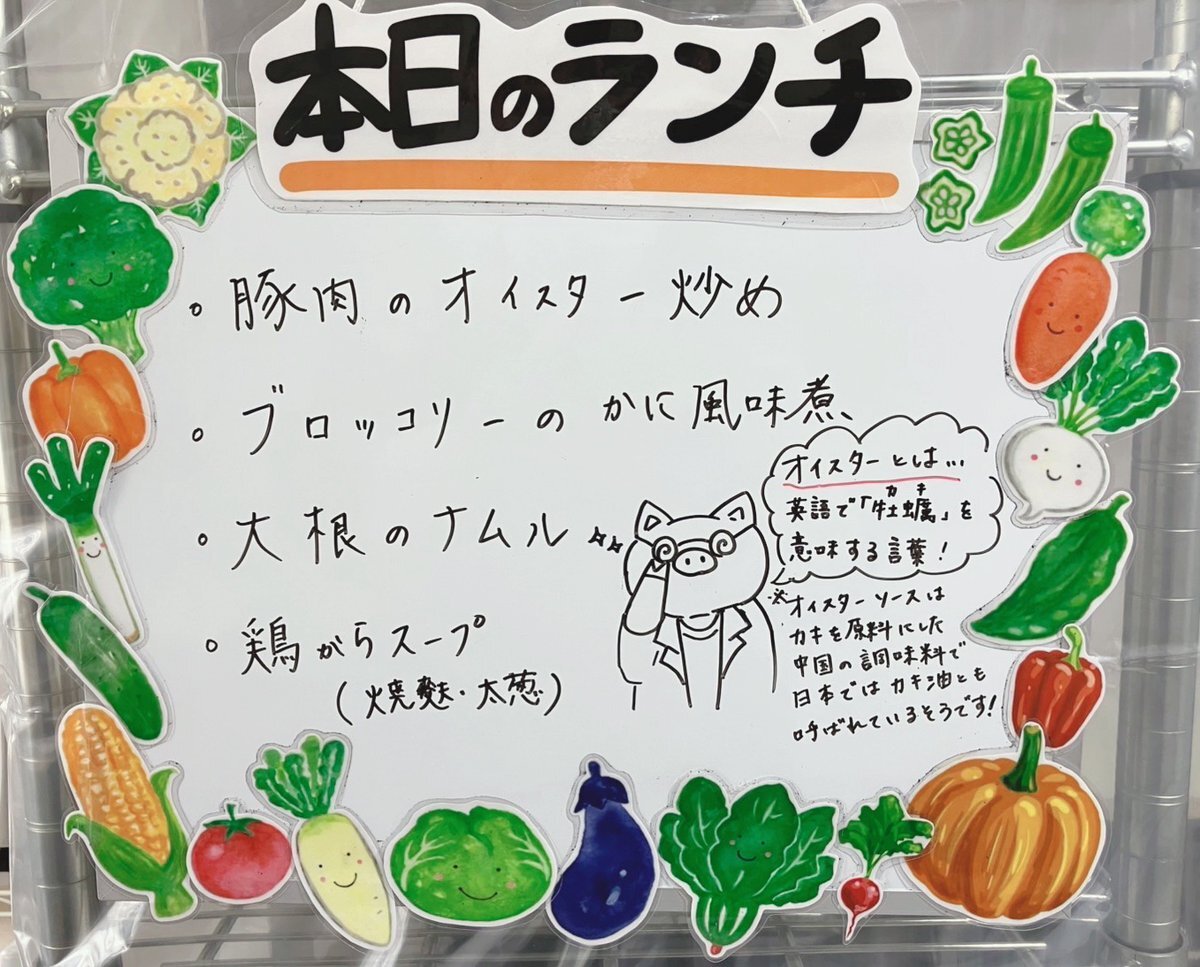 本日のランチ
・豚肉のオイスター炒め
・ブロッコリーのかに風味煮
・大根のナムル
・鶏がらスープ
(焼麩・太葱)
オイスターとは…
カキ
英語で「牡蠣」を
意味する言葉!
※オイスターソースは
カキを原料にした
中国の調味料で
日本ではカキ油とも
呼ばれているそうです!